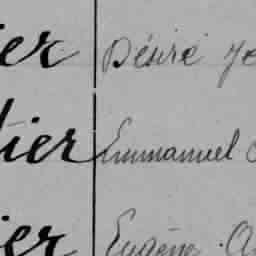 ier Désiré Je
tier Emmanuel
ier Eugène A